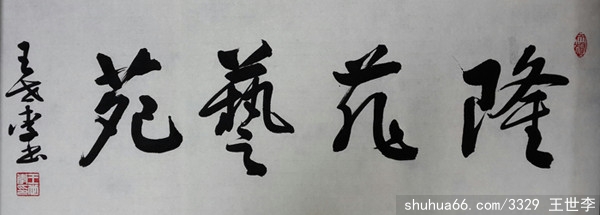 隆藝苑
王世李书
shuhua66.com/3329 王世李